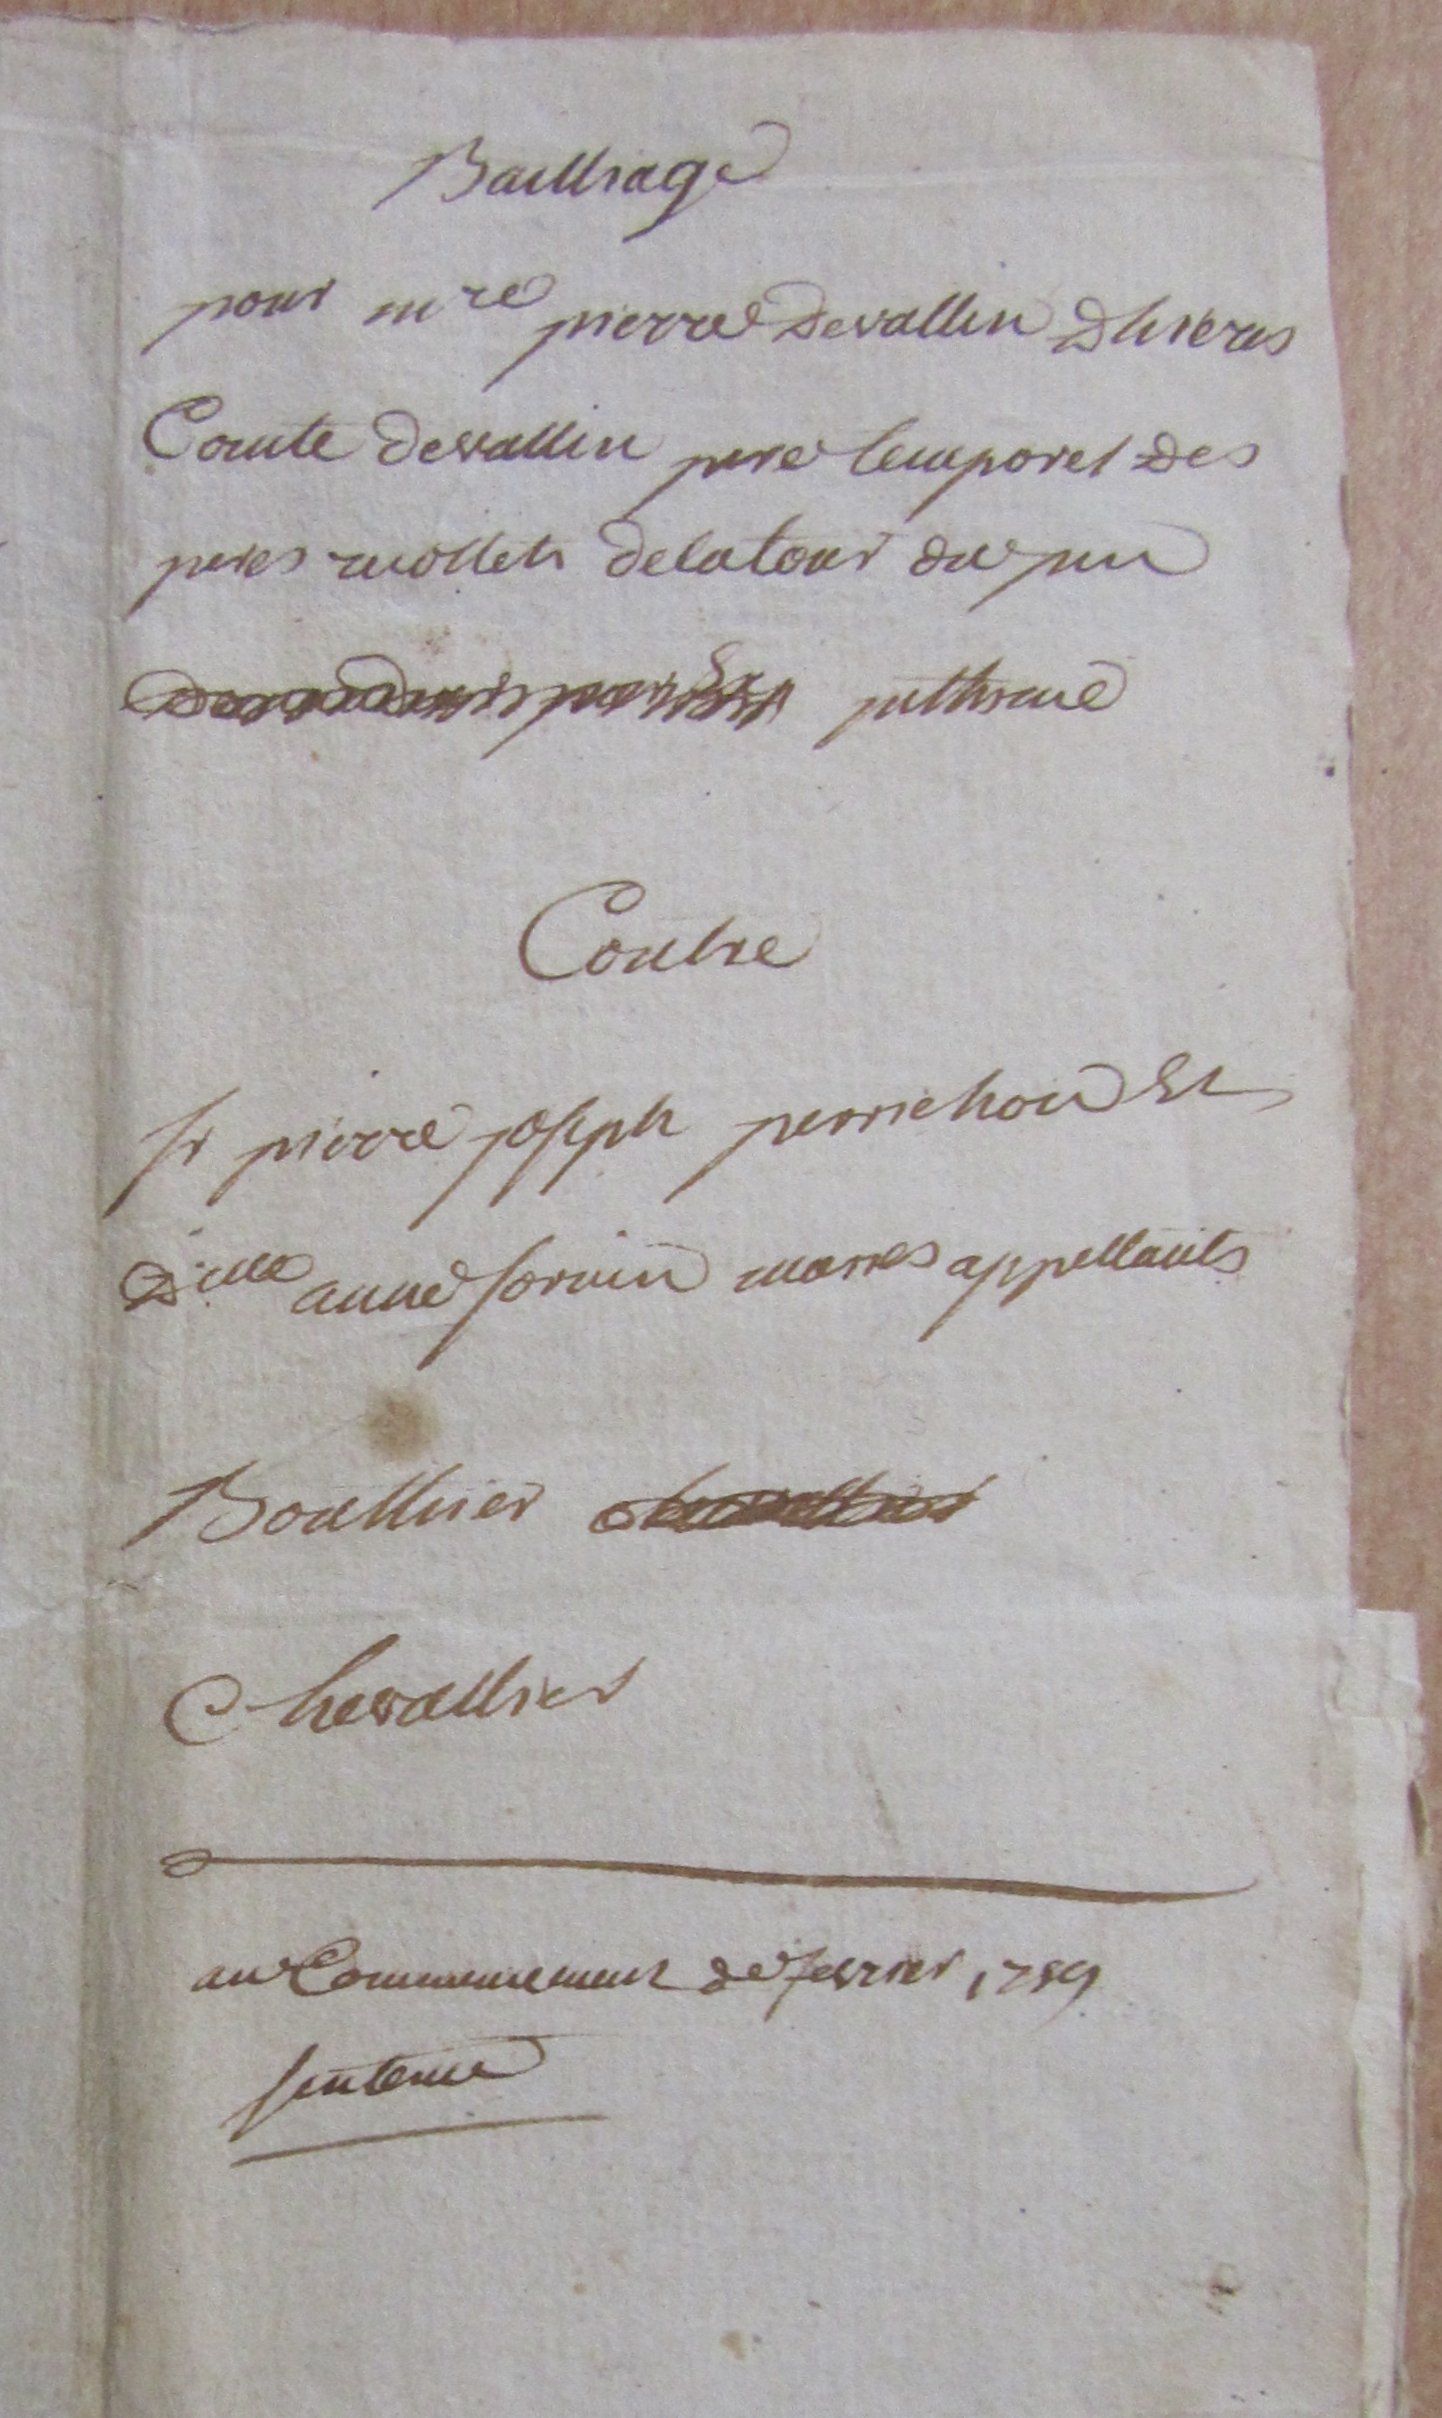 Bailliage
pour m.re pierre Devallin Dhieres
Comte devallin pere temporel des
peres recollets delatour du pin
inthimé
Contre
sr pierre joseph perrichon Et
D.lle anne sornin mariés appellants
Bouthier
Chevallier
au Commencement de fevrier 1789
sentence